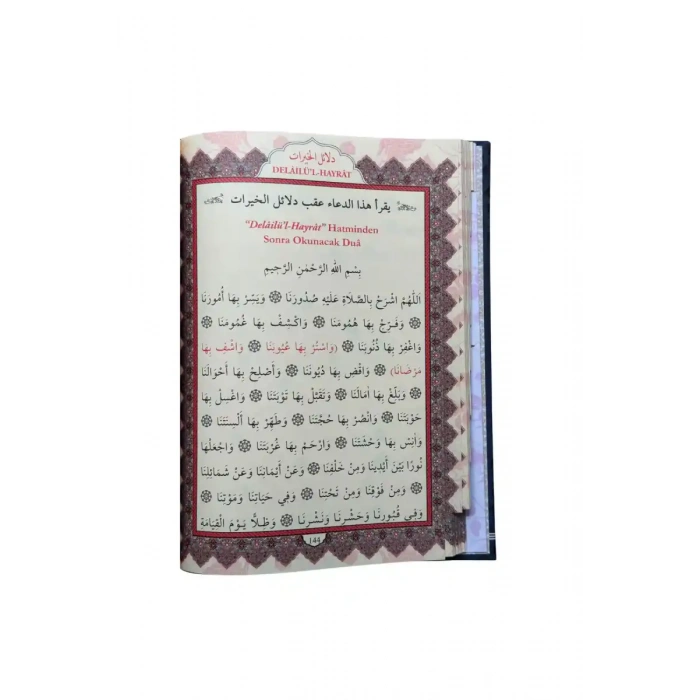 دلائل الخيرات
DELÂİLÜ'L-HAYRÂT
يقرأ هذا الدعاء عقب دلائل الخيرات
"Delâilü'l-Hayrât" Hatminden
Sonra Okunacak Duâ
بِسْمِ اللهِ الرَّحْمٰنِ الرَّحِيمِ
اَللّٰهُمَّ اشْرَحْ بِالصَّلَاةِ عَلَيْهِ صُدُورَنَا ۞ وَيَسِّرْ بِهَا أُمُورَنَا
۞ وَفَرِّجْ بِهَا هُمُومَنَا ۞ وَاكْشِفْ بِهَا غُمُومَنَا ۞
وَاغْفِرْ بِهَا ذُنُوبَنَا ۞ (وَاسْتُرْ بِهَا عُيُوبَنَا ۞ وَاشْفِ بِهَا
مَرْضَانَا) ۞ وَاقْضِ بِهَا دُيُونَنَا ۞ وَأَصْلِحْ بِهَا أَحْوَالَنَا
۞ وَبَلِّغْ بِهَا اٰمَالَنَا ۞ وَتَقَبَّلْ بِهَا تَوْبَتَنَا ۞ وَاغْسِلْ بِهَا
حَوْبَتَنَا ۞ وَانْصُرْ بِهَا حُجَّتَنَا ۞ وَطَهِّرْ بِهَا أَلْسِنَتَنَا
۞ وَاٰنِسْ بِهَا وَحْشَتَنَا ۞ وَارْحَمْ بِهَا غُرْبَتَنَا ۞ وَاجْعَلْهَا
نُورًا بَيْنَ أَيْدِينَا وَمِنْ خَلْفِنَا ۞ وَعَنْ أَيْمَانِنَا وَعَنْ شَمَائِلِنَا
۞ وَمِنْ فَوْقِنَا وَمِنْ تَحْتِنَا ۞ وَفِي حَيَاتِنَا وَمَوْتِنَا ۞
وَفِي قُبُورِنَا وَحَشْرِنَا وَنَشْرِنَا ۞ وَظِلًّا يَوْمَ الْقِيَامَةِ
144